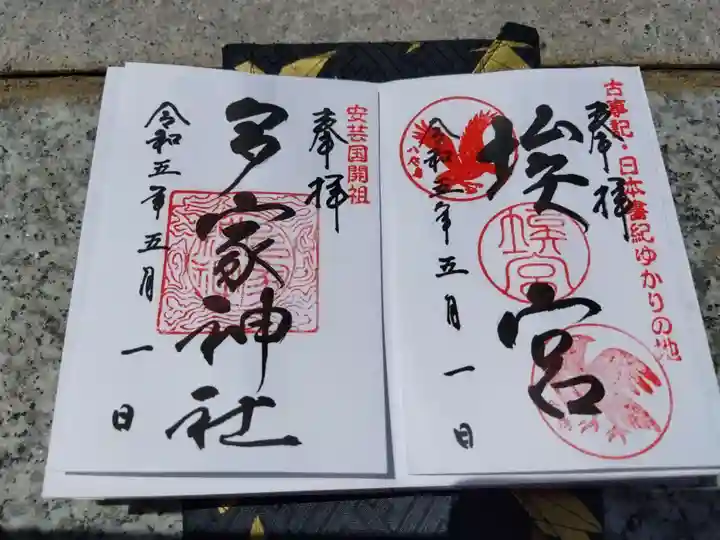 古事記・日本書紀ゆかりの地
奉拝
埃宮
埃宮
令和五年五月一日
八咫烏
安芸国開祖
奉拝
多家神社
令和五年五月一日